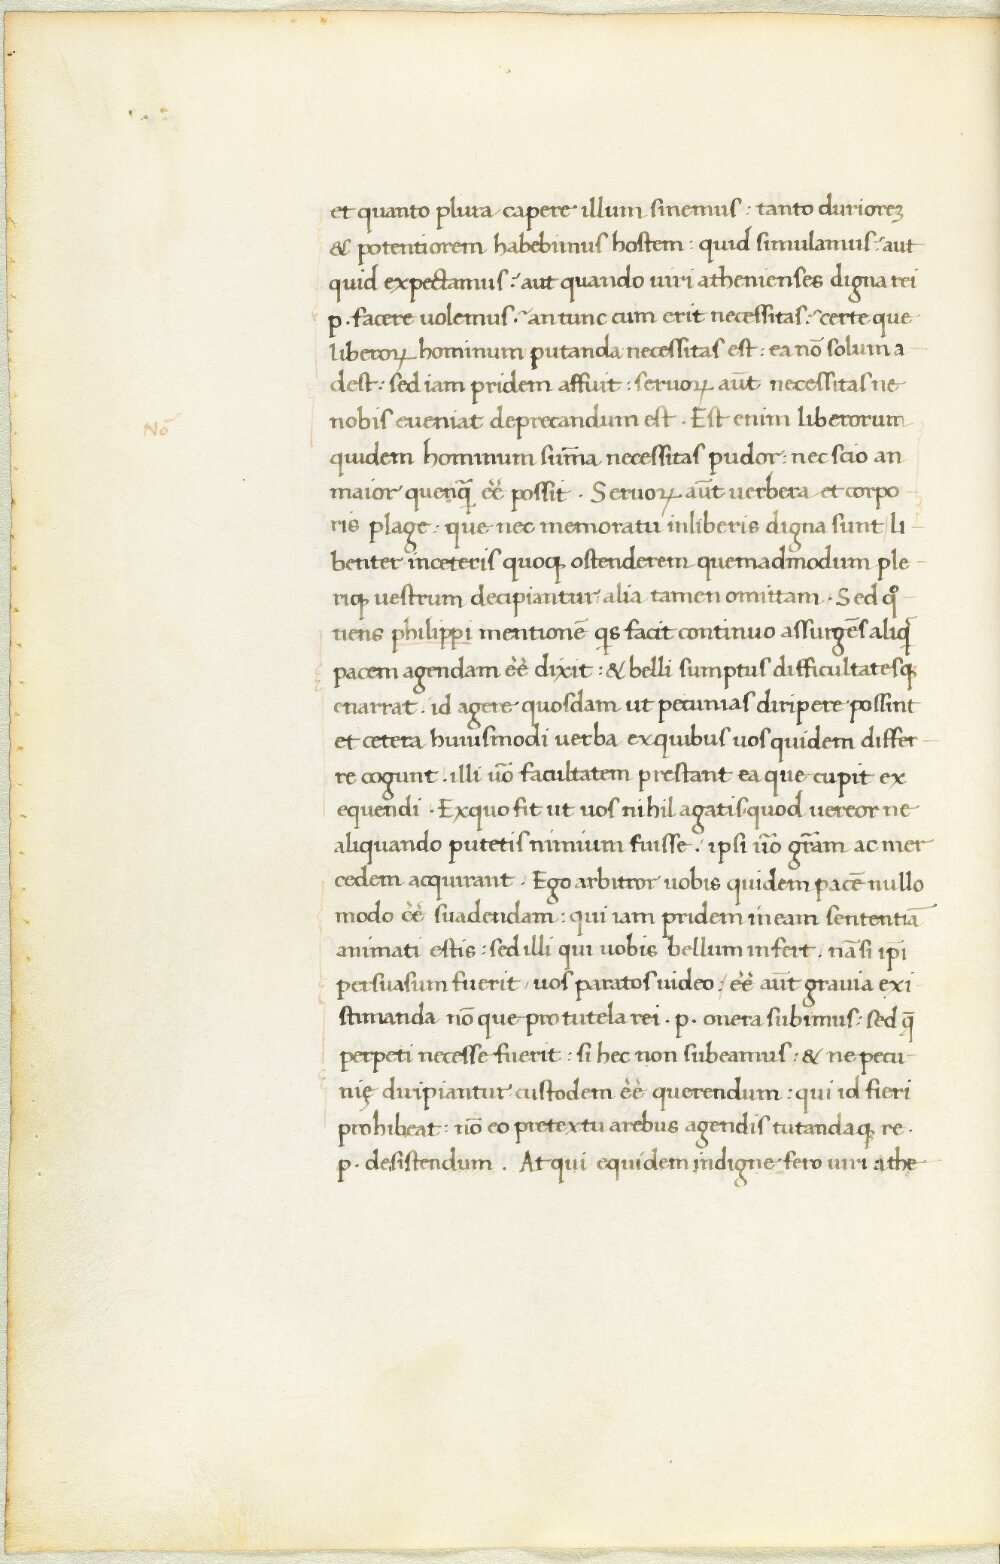 et quanto plura capere illum sinemus : tanto durioreꝫ
& potentiorem habebimus hostem : quid simulamus? aut
quid expectamus? aut quando uiri athenienses digna rei
p. facere uolemus? an tunc cum erit necessitas? certe que
liberoꝝ hominum putanda necessitas est : ea nō solum a
dest : sed iam pridem affuit : seruoꝝ aūt necessitas ne
nobis eueniat deprecandum est . Est enim liberorum
Nō
quidem hominum sum̄a necessitas pudor : nec scio an
maior quenq̄ eē possit . Seruoꝝ aūt uerbera et corpo
ris plage : que nec memoratu in liberis digna sunt / li
benter in ceteris quoqꝫ ostenderem quemadmodum ple
riqꝫ uestrum decipiantur / alia tamen omittam . Sed qͦ
tiens philippi mentionē qis facit continuo assurgēs aliqͥ
pacem agendam eē dixit : & belli sumptus difficultatesqꝫ
enarrat . id agere quosdam ut pecunias diripere possint
et cetera huiusmodi uerba ex quibus uos quidem differ
re cogunt . illi uō facultatem prestant ea que cupit ex
equendi . Ex quo fit ut uos nihil agatis quod uereor ne
aliquando putetis nimium fuisse . ipsi uō gr̄am ac mer
cedem acquirant . Ego arbitror uobis quidem pacē nullo
modo eē suadendam : qui iam pridem in eam sententiā
animati estis : sed illi qui uobis bellum infert . nā si ip̄i
persuasum fuerit / uos paratos uideo / eē aūt grauia exi
stimanda nō que pro tutela rei . p . onera subimus : sed q̄
perpeti necesse fuerit : si hec non subeamus : & ne pecu
nię diripiantur custodem eē querendum : qui id fieri
prohibeat : nō eo pretextu a rebus agendis tutandaqꝫ re .
p . desistendum . At qui equidem indigne fero uiri athe